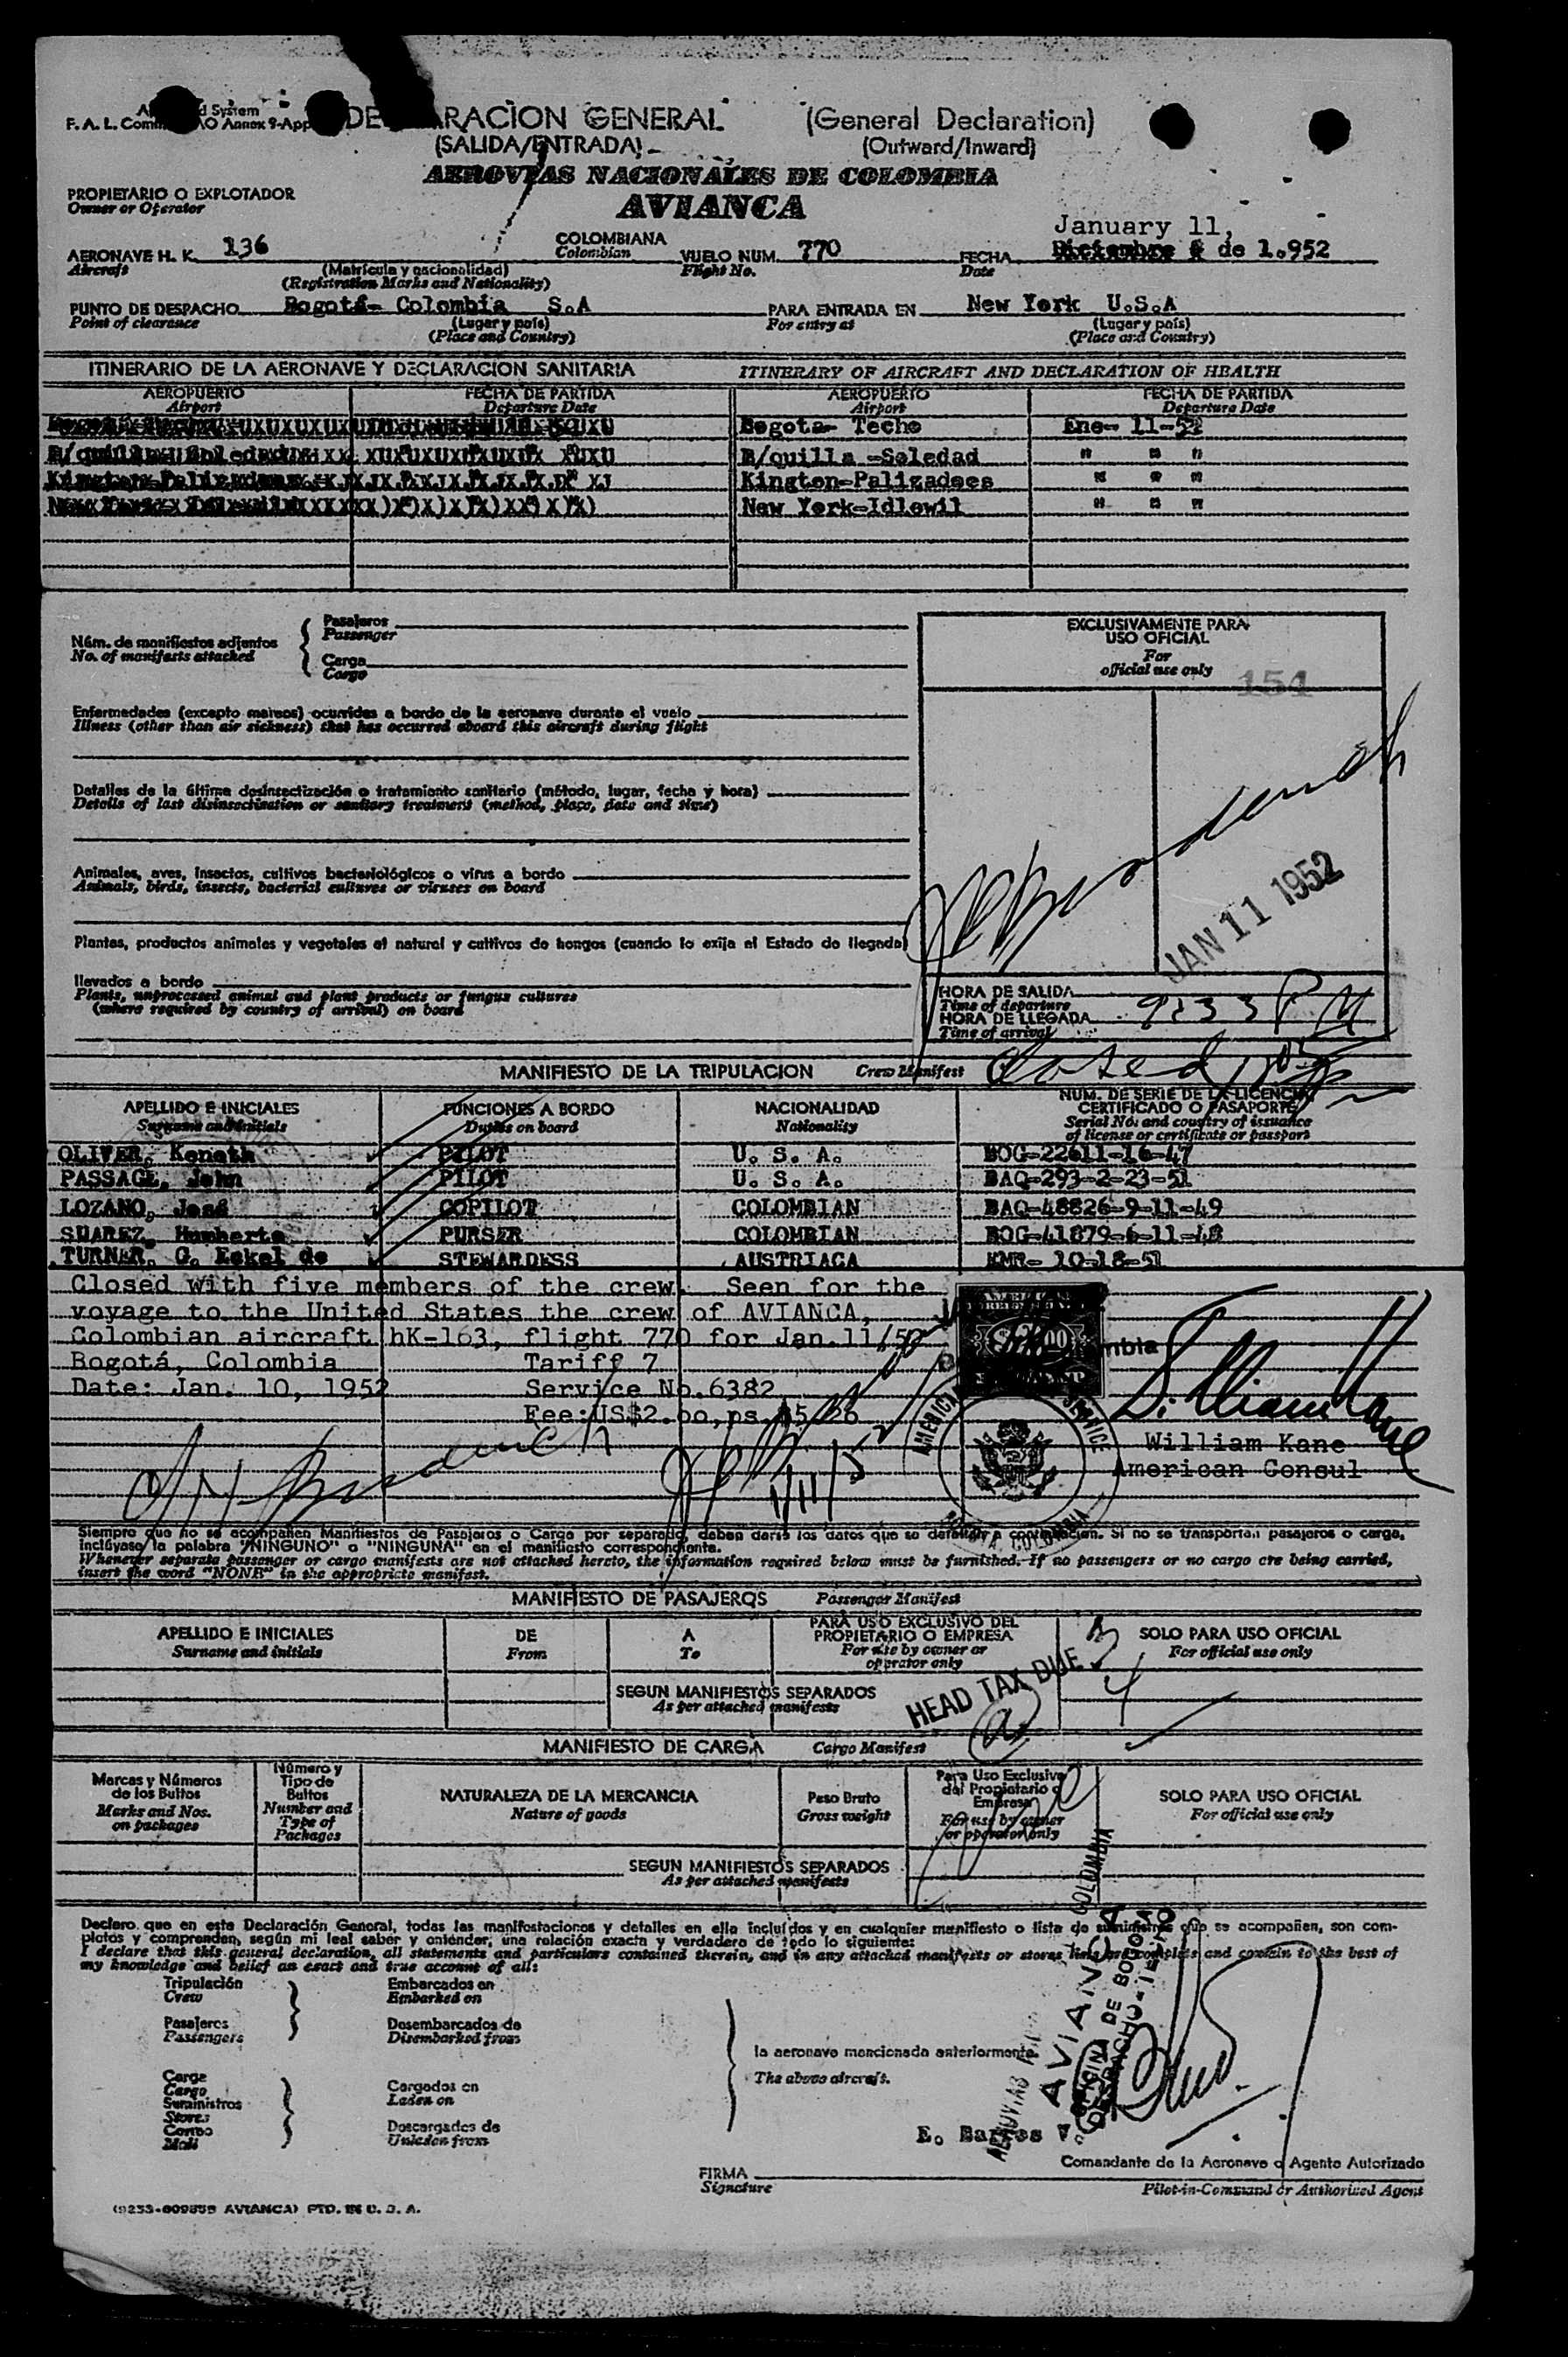 d System
F. A. L. Com O Annex 9-App
DE ARACION GENERAL (General Declaration)
(SALIDA/ENTRADA) (Outward/Inward)
AEROVIAS NACIONALES DE COLOMBIA
PROPIETARIO O EXPLOTADOR
Owner or Operator
AVIANCA
January 11,
AERONAVE H. K. 136 COLOMBIANA VUELO NUM. 770 FECHA Diciembre de 1.952
Aircraft (Matrícula y nacionalidad) Colombian Flight No. Date
(Registration Marks and Nationality)
PUNTO DE DESPACHO Bogotá- Colombia S.A PARA ENTRADA EN New York U.S.A
Point of clearance (Lugar y país) For entry at (Lugar y país)
(Place and Country) (Place and Country)
ITINERARIO DE LA AERONAVE Y DECLARACION SANITARIA ITINERARY OF AIRCRAFT AND DECLARATION OF HEALTH
AEROPUERTO FECHA DE PARTIDA AEROPUERTO FECHA DE PARTIDA
Airport Departure Date Airport Departure Date
Bogota- Techo Ene- 11-52
B/quilla -Soledad " " "
Kington-Palizadoes " " "
New York-Idlewil " " "
Núm. de manifiestos adjuntos
No. of manifests attached
Pasajeros
Passenger
Carga
Cargo
EXCLUSIVAMENTE PARA
USO OFICIAL
For
official use only
151
Enfermedades (excepto mareos) ocurridas a bordo de la aeronave durante el vuelo
Illness (other than air sickness) that has occurred aboard this aircraft during flight
Detalles de la última desinsectización o tratamiento sanitario (método, lugar, fecha y hora)
Details of last disinsectization or sanitary treatment (method, place, date and time)
Animales, aves, insectos, cultivos bacteriológicos o virus a bordo
Animals, birds, insects, bacterial cultures or viruses on board
JAN 11 1952
Plantas, productos animales y vegetales al natural y cultivos de hongos (cuando lo exija el Estado de llegada)
llevados a bordo
Plants, unprocessed animal and plant products or fungus cultures
(where required by country of arrival) on board
HORA DE SALIDA
Time of departure
HORA DE LLEGADA 9:33 PM
Time of arrival
MANIFIESTO DE LA TRIPULACION Crew Manifest Closed
APELLIDO E INICIALES FUNCIONES A BORDO NACIONALIDAD NUM. DE SERIE DE LA LICENCIA, CERTIFICADO O PASAPORTE
Surname and initials Duties on board Nationality Serial No. and country of issuance of license or certificate or passport
OLIVER, Keneth PILOT U. S. A. BOG-22611-16-47
PASSAGE, John PILOT U. S. A. BAQ-293-2-23-51
LOZANO, José COPILOT COLOMBIAN BAQ-48826-9-11-49
SUAREZ, Humberto PURSER COLOMBIAN BOG-41879-6-11-48
TURNER, G. Eckel de STEWARDESS AUSTRIACA EMR- 10-18-51
Closed with five members of the crew. Seen for the
voyage to the United States the crew of AVIANCA,
Colombian aircraft hK-163, flight 770 for Jan.11/52
Bogotá, Colombia Tariff 7
Date: Jan. 10, 1952 Service No.6382
Fee:US$2.oo,ps.
AMERICAN SERVICE
BOGOTA, COLOMBIA
William Kane
William Kane
American Consul
Siempre que no se acompañen Manifiestos de Pasajeros o Carga por separado, deben darse los datos que se detallan a continuación. Si no se transportan pasajeros o carga,
inclúyase la palabra "NINGUNO" o "NINGUNA" en el manifiesto correspondiente.
Whenever separate passenger or cargo manifests are not attached hereto, the information required below must be furnished. If no passengers or no cargo are being carried,
insert the word "NONE" in the appropriate manifest.
MANIFIESTO DE PASAJEROS Passenger Manifest
APELLIDO E INICIALES DE A PARA USO EXCLUSIVO DEL PROPIETARIO O EMPRESA SOLO PARA USO OFICIAL
Surname and initials From To For use by owner or operator only For official use only
SEGUN MANIFIESTOS SEPARADOS
As per attached manifests
HEAD TAX DUE
4
MANIFIESTO DE CARGA Cargo Manifest
Marcas y Números de los Bultos
Marks and Nos. on packages
Número y Tipo de Bultos
Number and Type of Packages
NATURALEZA DE LA MERCANCIA
Nature of goods
Peso Bruto
Gross weight
Para Uso Exclusivo del Propietario o Empresa
For use by owner or operator only
SOLO PARA USO OFICIAL
For official use only
SEGUN MANIFIESTOS SEPARADOS
As per attached manifests
Declaro que en esta Declaración General, todas las manifestaciones y detalles en ella incluídos y en cualquier manifiesto o lista de suministros que se acompañan, son com-
pletos y comprenden, según mi leal saber y entender, una relación exacta y verdadera de todo lo siguiente:
I declare that this general declaration, all statements and particulars contained therein, and in any attached manifests or stores lists are complete and contain to the best of
my knowledge and belief an exact and true account of all:
Tripulación Embarcados en
Crew Embarked on
Pasajeros Desembarcados de
Passengers Disembarked from
la aeronave mencionada anteriormente.
The above aircraft.
Carga Cargados en
Cargo Laden on
Suministros
Stores Descargados de
Correo Unladen from
Mail
AVIANCA
OFICINA DE BOGOTA
DESPACHO-TECHO
COLOMBIA
E. Barros V.
Comandante de la Aeronave o Agente Autorizado
FIRMA
Signature Pilot-in-Command or Authorized Agent
AVIANCA) PTD. IN U. S. A.